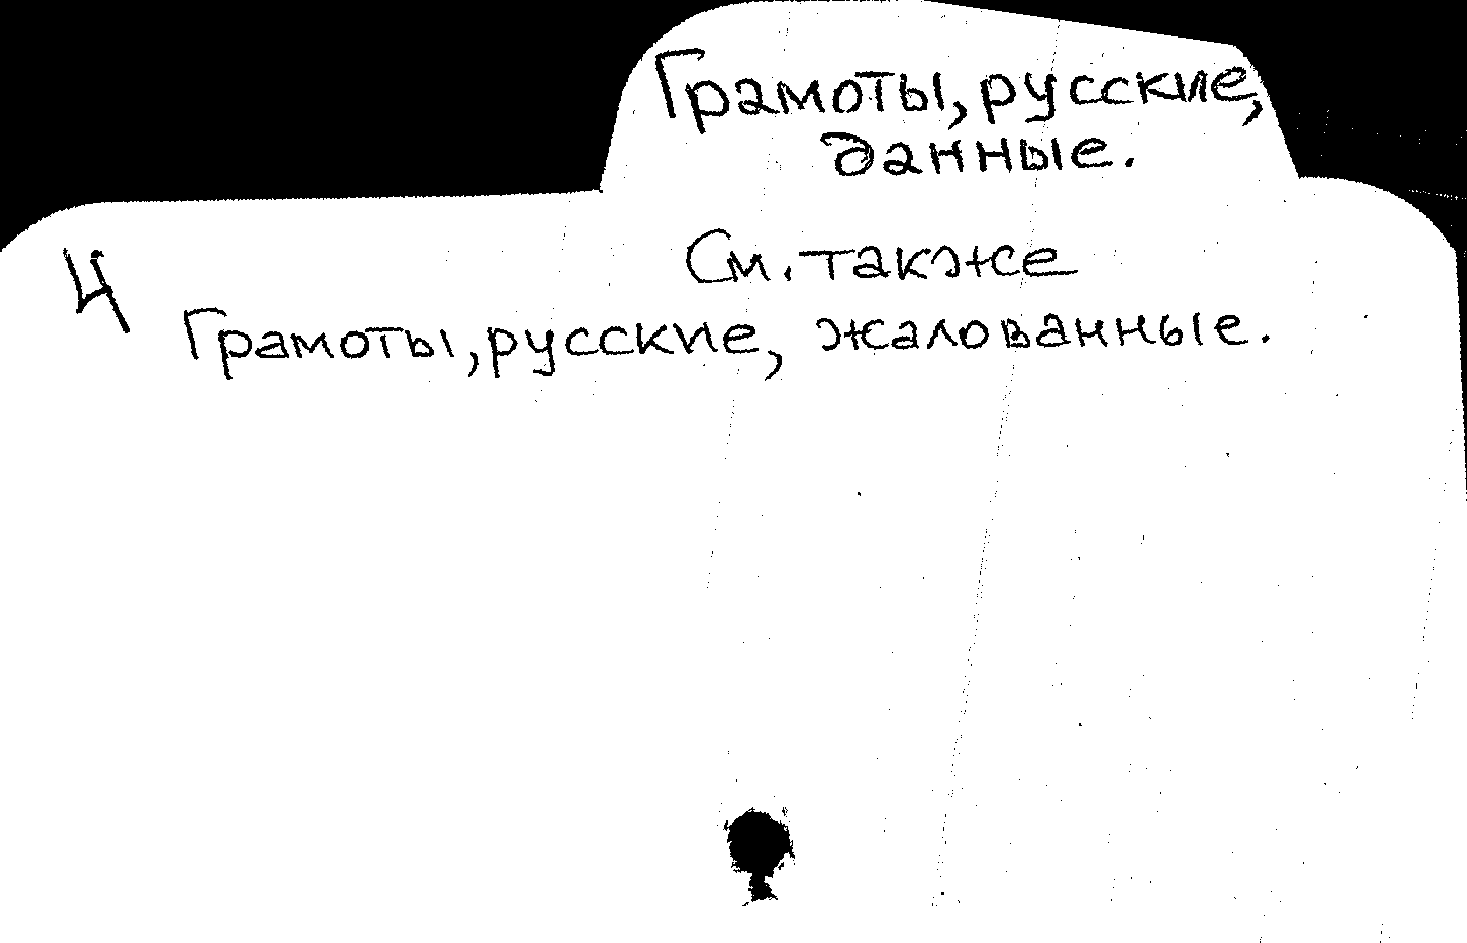 Грамоты, русские,
данные.
См. также
4
Грамоты, русские, жалованные.